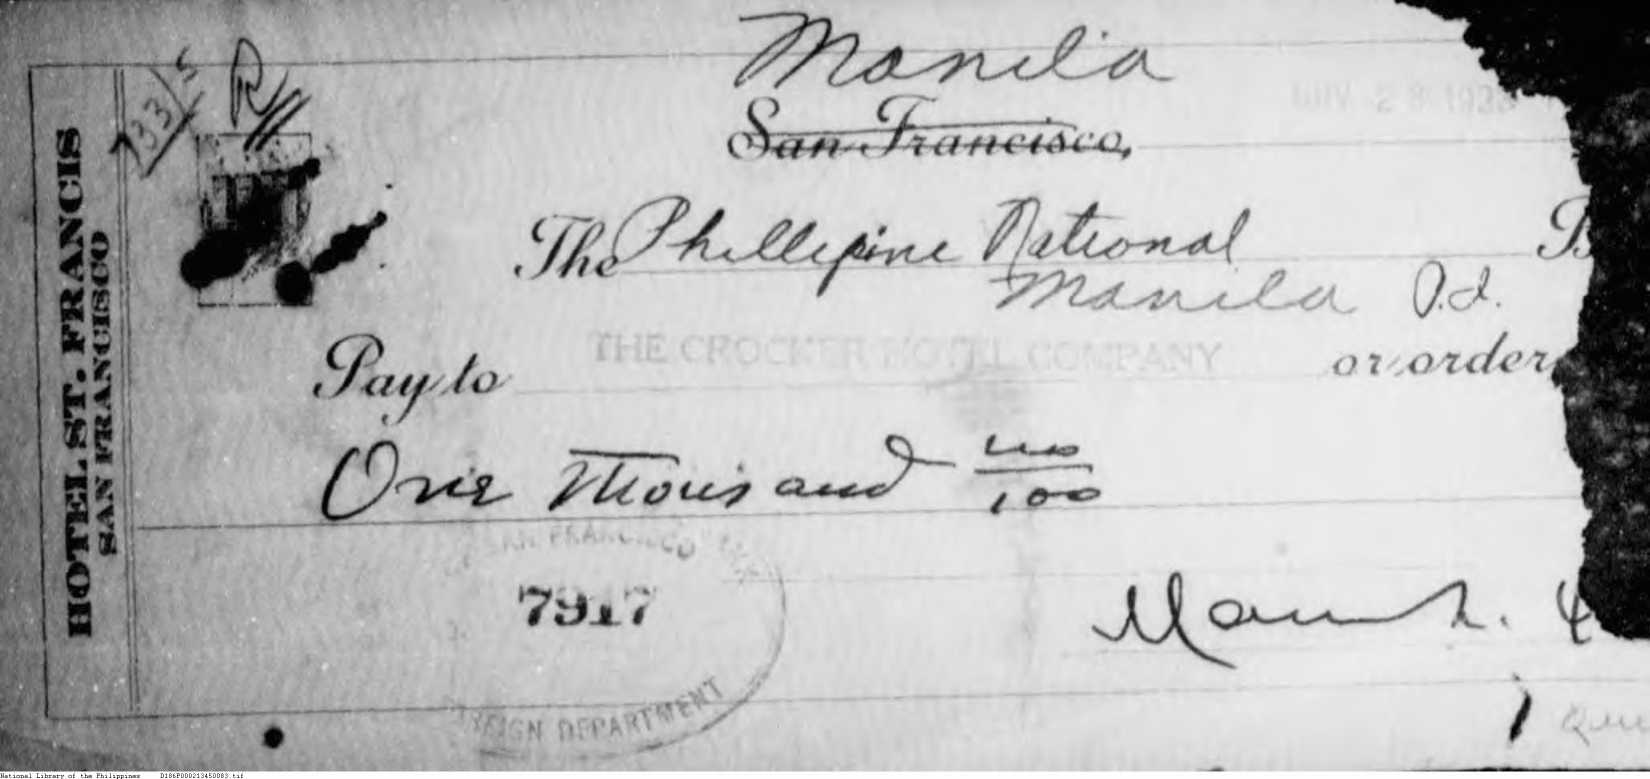 HOTEL ST. FRANCIS
SAN FRANCISCO
733/5
R
Manila
San Francisco,
28 1923
The Phillipine National B
Manila P.I.
Pay to THE CROCKER HOTEL COMPANY or order
One Thousand no/100
SAN FRANCISCO
7917
FOREIGN DEPARTMENT
National Library of the Philippines D186P000213450083.tif